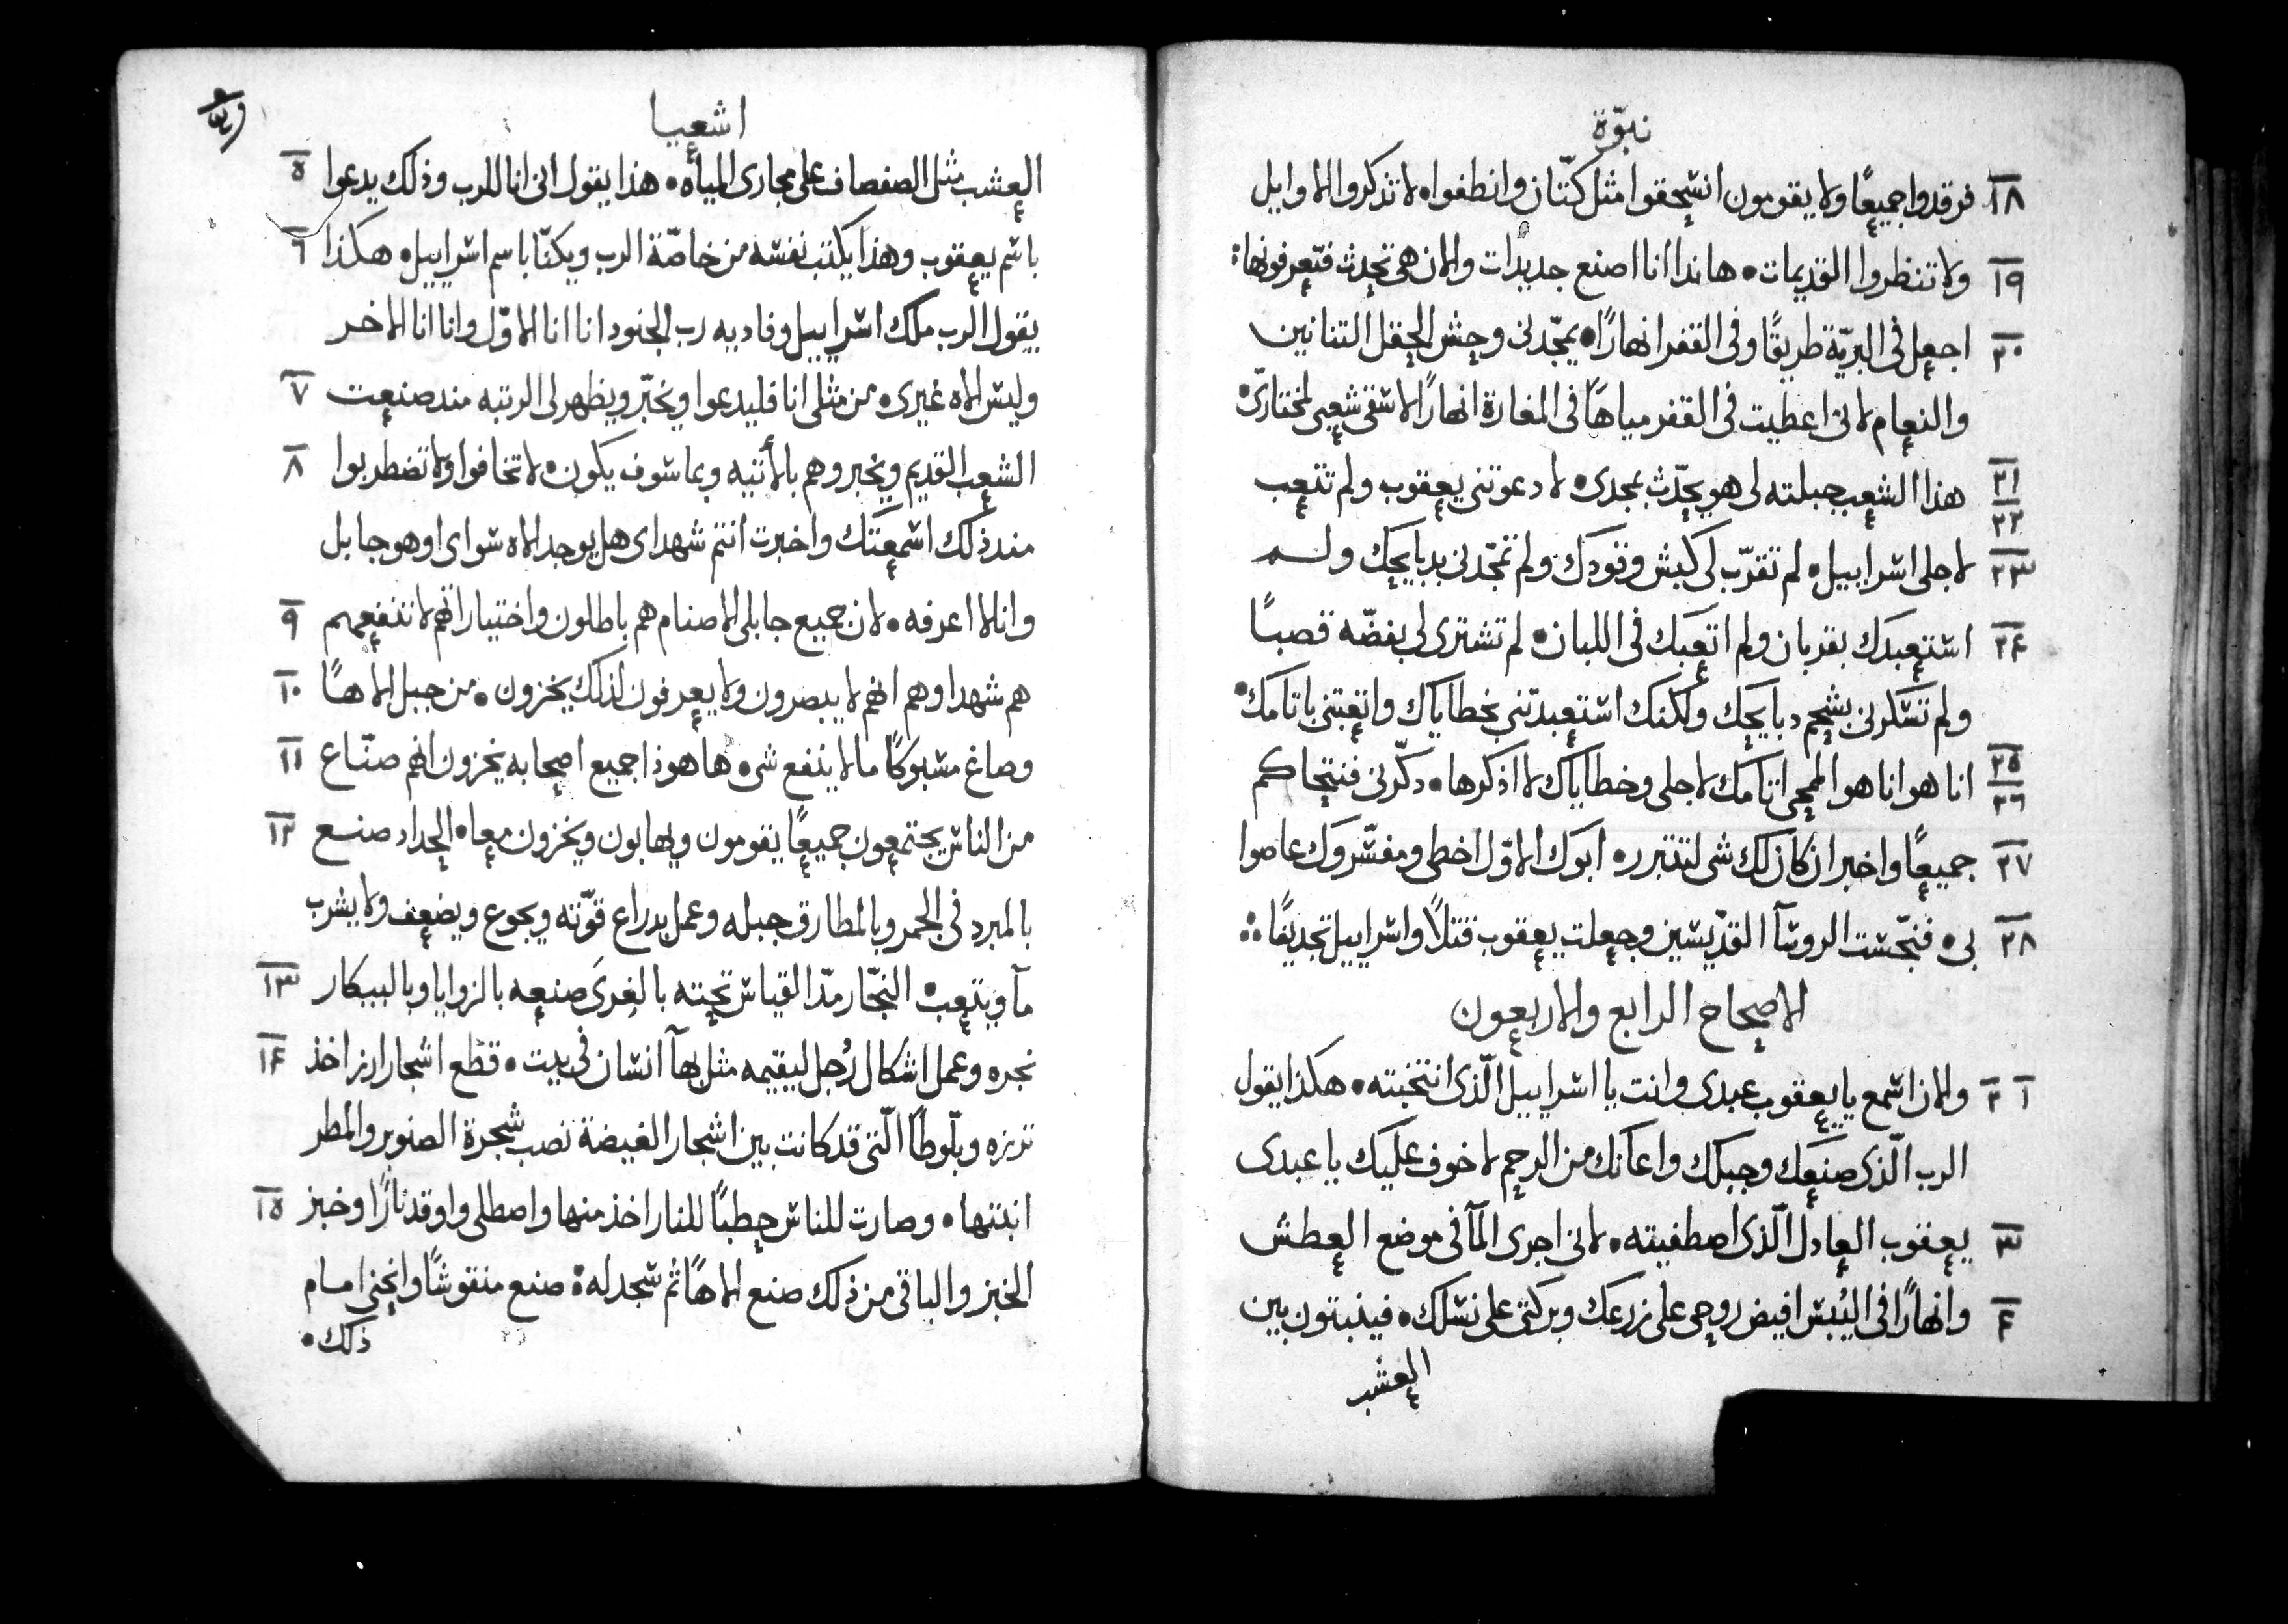 نبوّة
١٨ فرقدوا جميعًا ولا يقومون انسحقوا مثل كتّان وانطفوا، لا تذكروا الاوايل
١٩ ولا تنظروا القديمات، هاندا انا اصنع جديدات والان هى تحدث فتعرفونها؛
٢٠ اجعل فى البريّة طريقًا وفى القفر انهارًا، يمجّدنى وحش الحقل التنانين
والنعام لانى اعطيت فى القفر مياهًا فى المغارة انهارًا لاسقى شعبى لمختارىّ
٢١ ٢٢ هذا الشعب جبلته لى هو يحدّث بمجدى، لا دعوتنى يعقوب ولم تتعب
٢٣ لاجلى اسراييل، لم تقرّب لى كبش وقودك ولم تمجّدنى بدبايحك ولم
٢٤ استعبدك بقربان ولم اتعبك فى اللبان، لم تشترى لى بفضّه قصبًا
ولم تسكرنى بشحم دبايحك ولكنك استعبدتنى بخطاياك واتعبتنى باتامك،
٢٥ ٢٦ انا هو انا هو الممحى اتامك لاجلى وخطاياك لا اذكرها، دكّرنى فنتحاكم
٢٧ جميعًا واخبر ان كان لك شى لتتبرر، ابوك الاوّل اخطى ومفسّروك عاصوا
٢٨ بى، فنجّست الروسآ القدّيسين وجعلت يعقوب قتلًا واسراييل تجديفًا؛
الاصحاح الرابع والاربعون
١ ٢ والان اسمع يا يعقوب عبدى وانت يا اسراييل الّذى انتخبته، هكذا يقول
الرب الّذى صنعك وجبلك واعانك من الرحم لا خوف عليك يا عبدى
٣ يعقوب العادل الّذى اصطفيته، لانى اجرى المآ فى موضع العطش
٤ وانهارًا فى اليُبس افيض روحى على زرعك وبركتى على نسلك، فينبتون بين
العشب
اشعيا
العشب مثل الصفصاف على مجارى المياه، هذا يقول انى انا للرب وذلك يدعوا ٥
باسم يعقوب وهذا يكتب نفسه من خاصّة الرب ويكنّا باسم اسراييل، هكذا ٦
يقول الرب ملك اسراييل وفاديه رب الجنود انا انا الاوّل وانا انا الاخر
وليس الاه غيرى، من مثلى انا فليدعوا ويخبّر ويظهر لى الرتبه مند صنعت ٧
الشعب القديم ويخبروهم بالأتيه وبما سوف يكون، لا تخافوا ولا تضطربوا ٨
مند ذلك اسمعتك واخبرت انتم شهداى هل يوجد الاه سواى او هو جابل
وانا لا اعرفه، لان جميع جابلى الاصنام هم باطلون واختياراتهم لا تنفعهم ٩
هم شهداوهم انهم لا يبصرون ولا يعرفون لذلك يخزون، من جبل الاهًا ١٠
وصاغ مسبوكًا ما لا ينفع شى، ها هوذا جميع اصحابه يخزون انهم صنّاع ١١
من الناس يجتمعون جميعًا يقومون ويهابون ويخزون معا، الحداد صنع ١٢
بالمبرد فى الجمر وبالمطارق جبله وعمل بدراع قوّته ويجوع ويضعف ولا يشرب
مآ ويتعب، النجّار مدّ القياس نحته بالغِرى صنعه بالزوايا وبالبيكار ١٣
نجره وعمل اشكال رُجل ليقيمه مثل بهآ انسان فى بيت، قطع اشجار ارز اخذ ١٤
ترزه وبلّوطًا الّتى قد كانت بين اشجار الغيضة نصب شجرة الصنوبر والمطر
انبتها، وصارت للناس حطبًا للنار اخذ منها واصطلى واوقد نارًا وخبز ١٥
الخبز والباقى من ذلك صنع الاهًا ثم سجد له؛ صنع منقوشًا وانحنى امام
ذلك،